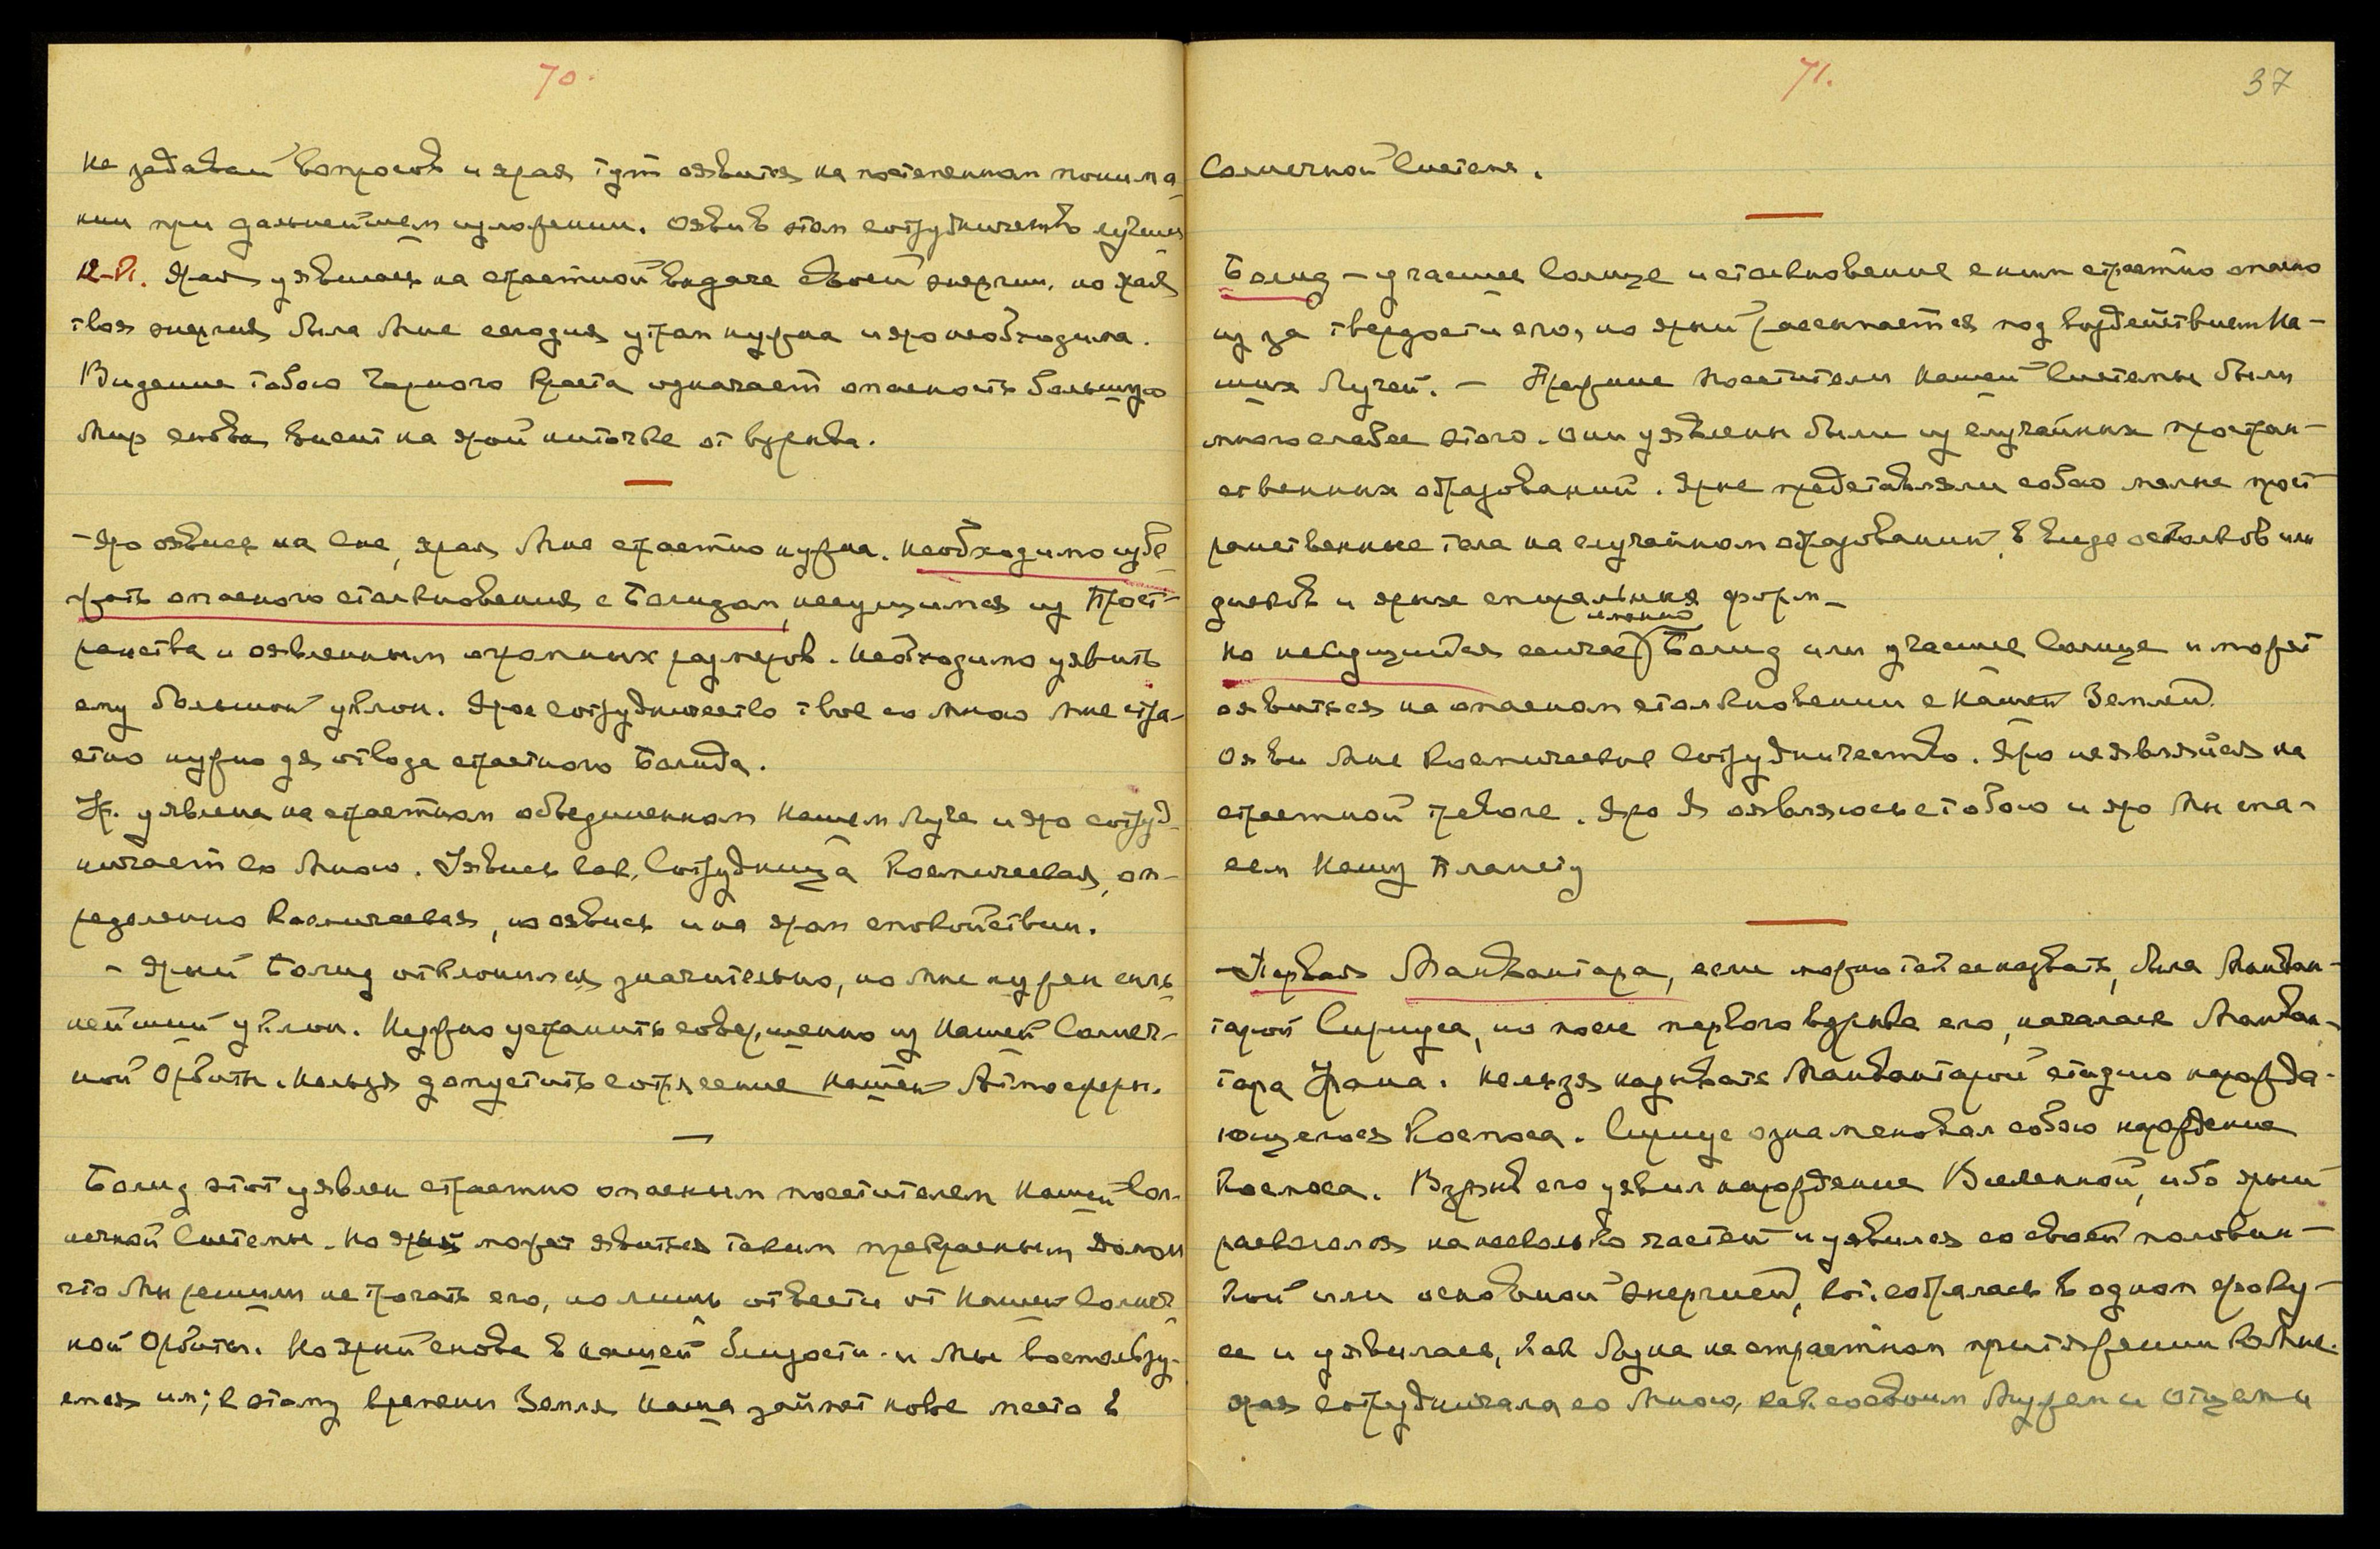 70.
не задавай вопросов и ярая тут оявится на постепенном понима-
нии при дальнейшем изложении. Оявив этап сотрудничества лучших
Ярая уявилась на страстной выдаче своей энергии, но ярая
твоя энергия была Мне сегодня утром нужна и яро необходима.
Видение тобою Черного Креста означает опасность большую
Мир снова висит на ярой ниточке от взрыва.
- Яро оявись на сне, ярая Мне страстно нужна. Необходимо избе-
жать опасного столкновения с Болидом, несущимся из Прост-
ранства и оявленным огромных размеров. Необходимо уявить
ему большой уклон. Ярое сотрудничество твое со Мною Мне стра-
стно нужно для отвода страстного Болида.
Ур. уявлена на страстном объединенном Нашем Луче и яро сотруд-
ничает со Мною. Уявись как, Сотрудница Космическая, оп-
ределенно Космическая, но оявись и на яром спокойствии.
- Ярый Болид отклонился значительно, но Мне нужен силь-
нейший уклон. Нужно устранить совершенно из Нашей Солнеч-
ной Орбиты. Нельзя допустить сотрясение Нашей Атмосферы.
Болид этот уявлен страстно опасным посетителем Нашей Сол-
нечной Системы. Но ярый может явиться таким прекрасным
что Мы решили не трогать его, но лишь отвести от Нашей Солнеч-
ной Орбиты. Но ярый снова в нашей близости и Мы воспользу-
емся им; к этому времени Земля Наша займет новое место в
71.
37
Солнечной Системе.
Болид - угасшее Солнце и столкновение с ним страстно опасно
из за твердости его, но ярый рассыпается под воздействием На-
ших Лучей. - Прежние Посетители Нашей Системы были
много слабее этого. Они уявлены были из случайных простран-
ственных образований. Ярые представляли собою малые прост
ранственные тела на случайном образовании, в виде осколков или
дисков и ярых спиральных форм_
именно
Но несущийся сейчас) Болид или угасшее Солнце и может
оявиться на опасном столкновении с Нашей Землей.
Ояви Мне Космическое Сотрудничество. Яро не являйся на
страстной тревоге. Яро Я оявляюсь с тобою и яро Мы спа-
сем Нашу Планету
- Первая Манвантара, если можно так ее назвать, была Манван-
тарой Сириуса, но после первого взрыва его, началась Манван-
тара Урана. Нельзя называть Манвантарой стадию нарожда-
ющегося Космоса. Сириус ознаменовал собою нарождение
Космоса. Взрыв его уявил нарождение Вселенной, ибо ярый
раскололся на несколько частей и уявился со своей половин-
ной или основной Энергией, кот. собралась в одном фоку-
се и уявилась, как Луна на страстном притяжении ко Мне.
Ярая сотрудничала со Мною, как со своим Мужем и Отцем и